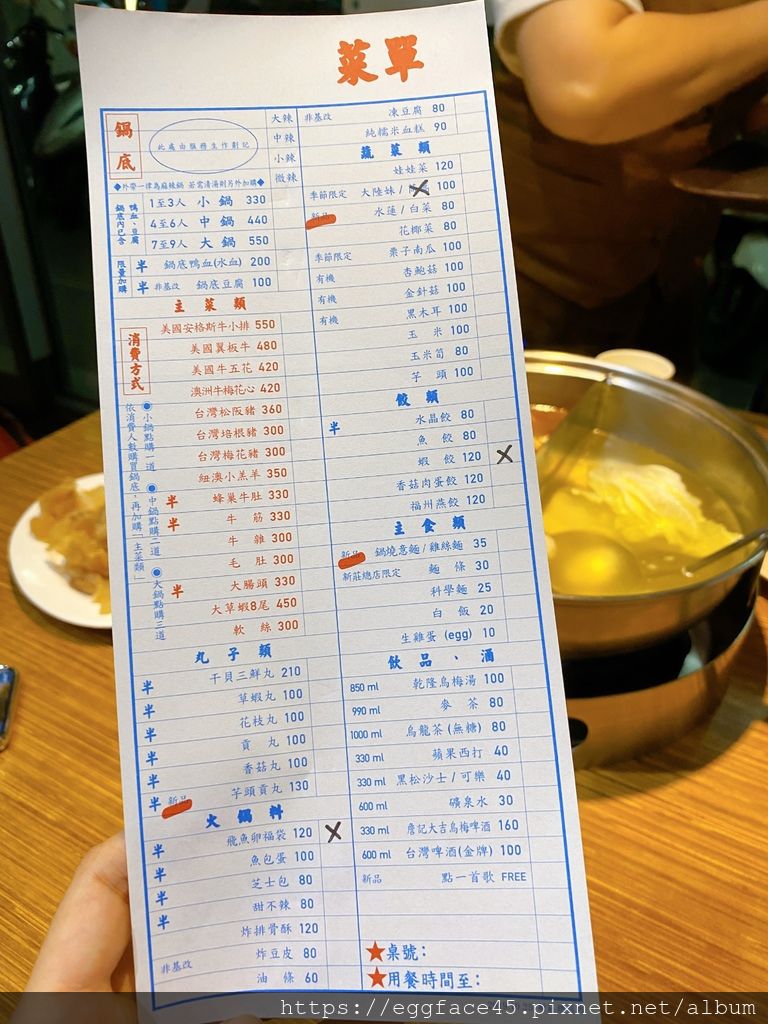 菜單
鍋底
此處由服務生作劃記
大辣
中辣
小辣
微辣
◆外帶一律為麻辣鍋 若需清湯則另外加購◆
鴨血、豆腐
鍋底內已含
1至3人 小鍋 330
4至6人 中鍋 440
7至9人 大鍋 550
限量加購
半 鍋底鴨血(水血) 200
半 非基改 鍋底豆腐 100
主菜類
消費方式
依消費人數購買鍋底,再加購「主菜類」
●小鍋點購一道 ●中鍋點購二道 ●大鍋點購三道
美國安格斯牛小排 550
美國翼板牛 480
美國牛五花 420
澳洲牛梅花心 420
台灣松阪豬 360
台灣培根豬 300
台灣梅花豬 300
紐澳小羔羊 350
半 蜂巢牛肚 330
半 牛筋 330
牛雜 300
毛肚 300
半 大腸頭 330
大草蝦8尾 450
軟絲 300
丸子類
半 干貝三鮮丸 210
半 草蝦丸 100
半 花枝丸 100
半 貢丸 100
半 香菇丸 100
半 新品 芋頭貢丸 130
火鍋料
飛魚卵福袋 120
半 魚包蛋 100
半 芝士包 80
半 甜不辣 80
半 炸排骨酥 120
非基改 炸豆皮 80
油條 60
非基改 凍豆腐 80
純糯米血糕 90
蔬菜類
娃娃菜 120
季節限定 大陸妹/ 100
新品 水蓮/白菜 80
花椰菜 80
季節限定 栗子南瓜 100
有機 杏鮑菇 100
有機 金針菇 100
有機 黑木耳 100
玉米 100
玉米筍 80
芋頭 100
餃類
半 水晶餃 80
魚餃 80
蝦餃 120
香菇肉蛋餃 120
福州燕餃 120
主食類
新品 鍋燒意麵/雞絲麵 35
新莊總店限定 麵條 30
科學麵 25
白飯 20
生雞蛋 (egg) 10
飲品、酒
850 ml 乾隆烏梅湯 100
990 ml 麥茶 80
1000 ml 烏龍茶(無糖) 80
330 ml 蘋果西打 40
330 ml 黑松沙士/可樂 40
600 ml 礦泉水 30
330 ml 詹記大吉烏梅啤酒 160
600 ml 台灣啤酒(金牌) 100
新品 點一首歌 FREE
★桌號:
★用餐時間至:
https://eggface45.pixnet.net/album